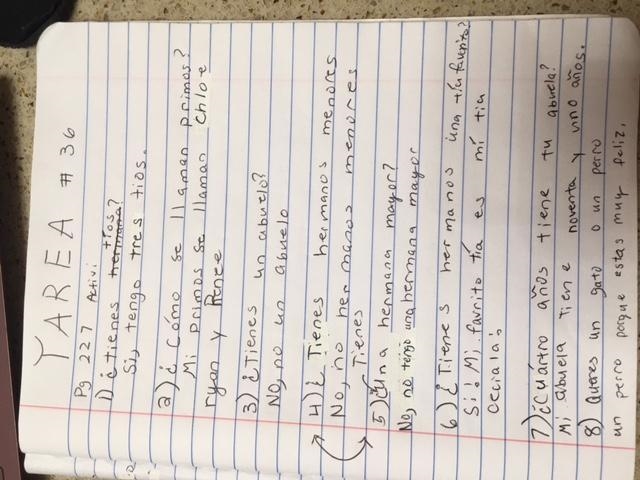 TAREA # 36
Pg 227 Activi
1) ¿tienes hermana? tíos
Si, tengo tres tios.
2) ¿Cómo se llaman primos?
Mi primos se llaman Chloe
ryan y Renee
3) ¿Tienes un abuelo?
No, no un abuelo
4) ¿Tienes hermanos menores
No, no hermanos menores
Tienes
5) ¿Una hermana mayor?
No, no tengo una hermana mayor
6) ¿Tienes hermanos una tía favrito?
Si! Mi favrito tía es mí tia
7) ¿Cuántro años tiene tu abuela?
Mi abuela tiene noventa y uno años.
8) Quieres un gato o un perro
un perro porque estas muy feliz.